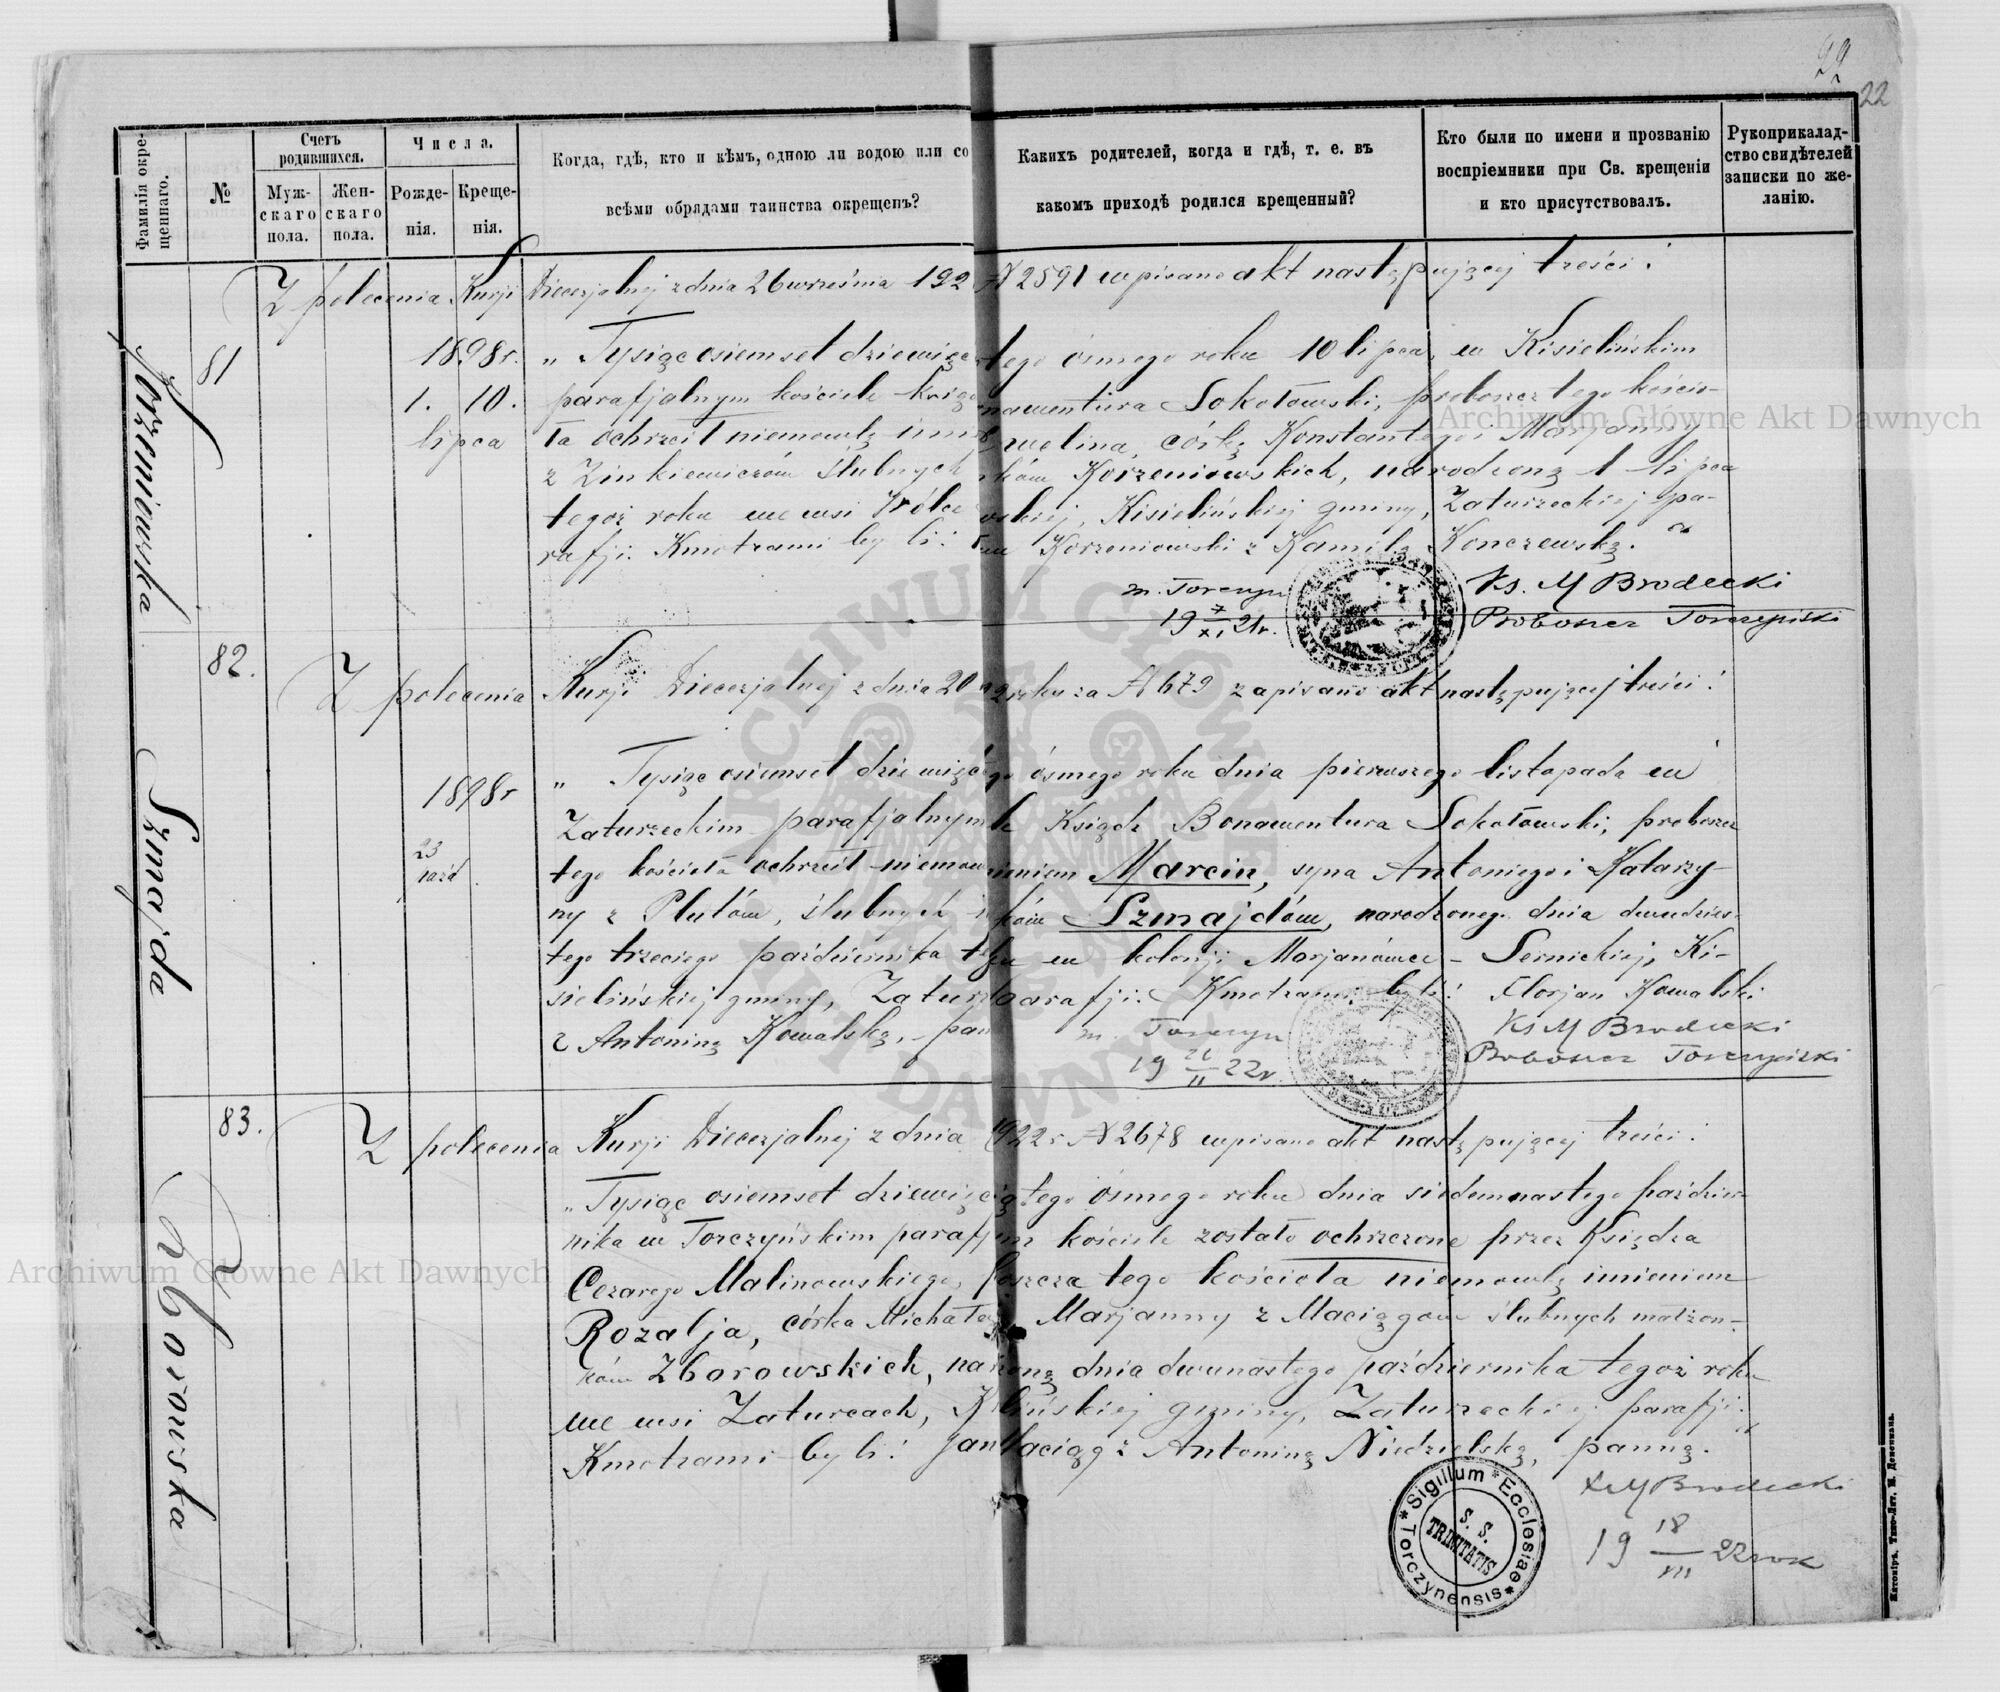 22
22
Фамилія окре-
щеннаго.
№
Счетъ
родившихся.
Муж-
скаго
пола.
Жен-
скаго
пола.
Числа.
Рожде-
нія.
Креще-
нія.
Когда, гдѣ, кто и кѣмъ, одною ли водою или со
всѣми обрядами таинства окрещенъ?
Какихъ родителей, когда и гдѣ, т. е. въ
какомъ приходѣ родился крещенный?
Кто были по имени и прозванію
воспріемники при Св. крещеніи
и кто присутствовалъ.
Рукоприкалад-
ство свидѣтелей
записки по же-
ланію.
Z polecenia Kurji Diecezjalnej z dnia 26 września 192 N 2591 wpisano akt następującej treści:
Korzeniowska
81
1898r.
1. 10.
lipca
„ Tysiąc osiemset dziewięc tego ósmego roku 10 lipca, w Kisielińskim
parafjalnym kościele Sokołowski, proboszcz tego kościo-
ła ochrzcił niemowlę córkę Konstantego i Marjanny
z Zinkiewiczów ślubnych Korzeniowskich, narodzoną 1 lipca
tegoż roku we wsi Kisielińskiej gminy, Zaturzeckiej pa-
rafji. Kmotrami byli: Korzeniowski z Kamilą Konczewską.
m. Torczyn
19 7/XI 21r.
Ks. M Brodecki
Proboszcz Torczyński
82.
Szmajda
Z polecenia Kurji Diecezjalnej z dnia 20 za N 679 zapisano akt następującej treści:
1898r
23
paźd
„ Tysiąc osiemset dziewięć ósmego roku dnia pierwszego listopada w
Zaturzeckim parafjalnym Ksiądz Bonawentura Sokołowski, proboszcz
tego kościoła ochrzcił niemow imieniem Marcin, syna Antoniego i Katarzy-
ny z Plutów, ślubnych Szmajdów, narodzonego dnia dwudzies-
tego trzeciego października w kolonji Marjanówce - Sernickiej, Ki-
sielińskiej gminy, Zaturz parafji. Kmotrami byli: Florjan Kowalski
z Antoniną Kowalską,
m. Torczyn
19 26/II 22r.
Ks M Brodecki
Proboszcz Torczyński
83.
Zborowska
Z polecenia Kurji Diecezjalnej z dnia 1922 r N 2678 wpisano akt następującej treści:
„ Tysiąc osiemset dziewięć tego ósmego roku dnia siedemnastego paździer-
nika w Torczyńskim parafj kościele zostało ochrzczone przez Księdza
Cezarego Malinowskiego, tego kościoła niemowlę imieniem
Rozalja, córka Michała Marjanny z Maciągów ślubnych małżon-
ków Zborowskich, dnia dwunastego października tegoż roku
we wsi Zaturcach, gminy, Zaturzeckiej parafji.
Kmotrami byli: Jan Maciąg z Antoniną Niedzielską, panną.
X M Brodecki
19 18/III 22 rok
Sigillum Ecclesiae Torczynensis
S. S.
TRINITATIS
Житоміръ. Типо-Лит. М. Дененмана.
Archiwum Główne Akt Dawnych
Archiwum Główne Akt Dawnych
ARCHIWUM GŁÓWNE AKT DAWNYCH